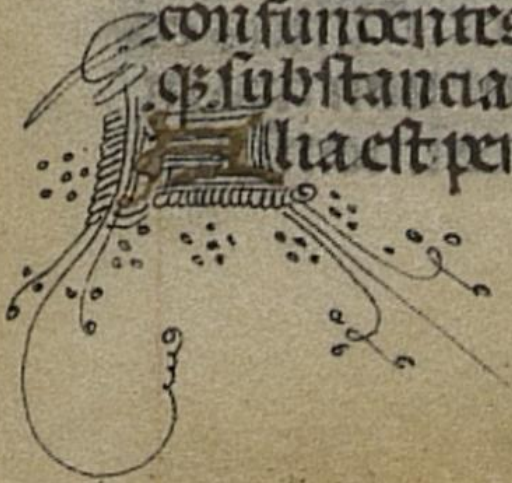 confundentes
qꝫ substancia
Alia est per